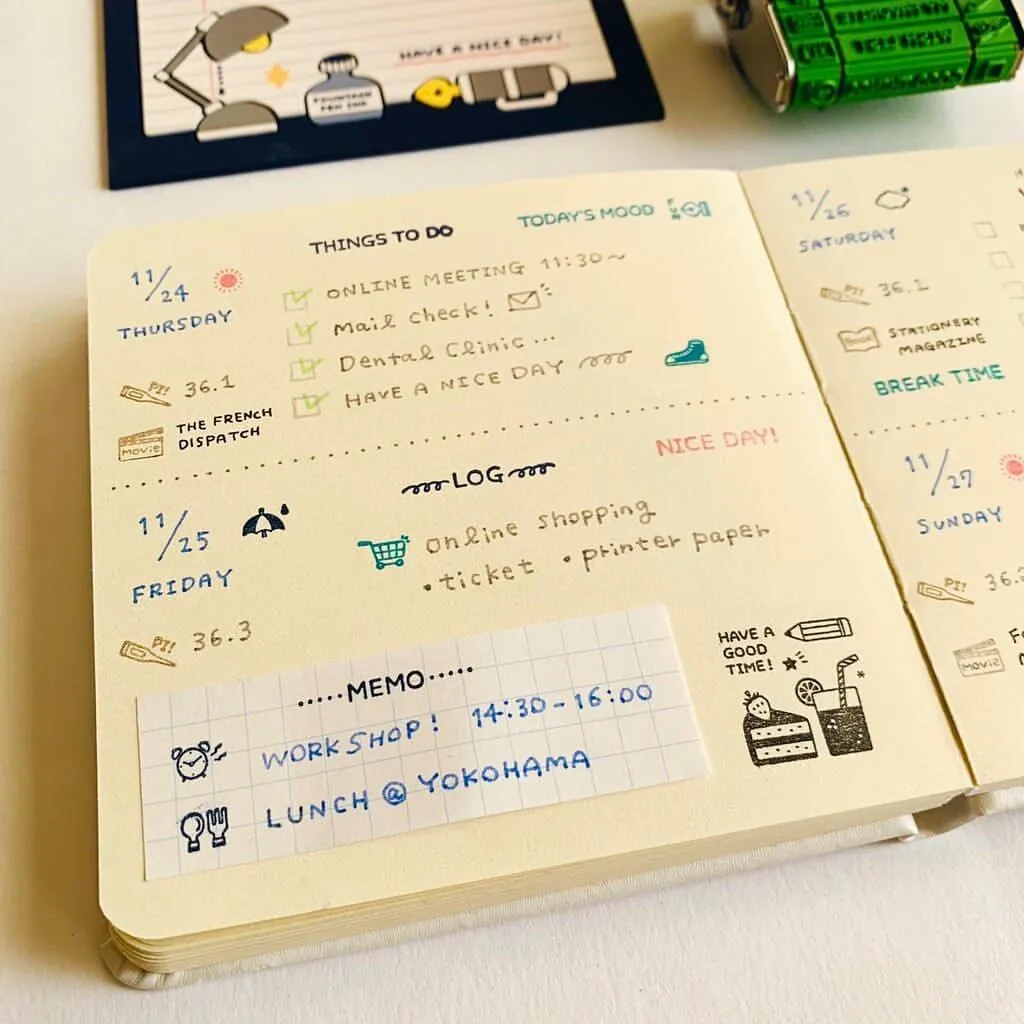 HAVE A NICE DAY!
FOUNTAIN
PEN INK
THINGS TO DO
TODAY'S MOOD
11/24
THURSDAY
ONLINE MEETING 11:30~
Mail check!
Dental Clinic...
HAVE A NICE DAY
PI! 36.1
MOVIE
THE FRENCH
DISPATCH
NICE DAY!
LOG
11/25
FRIDAY
online shopping
•ticket •printer paper
PI! 36.3
.....MEMO.....
WORKSHOP! 14:30-16:00
LUNCH @ YOKOHAMA
HAVE A
GOOD
TIME!
11/26
SATURDAY
36.1
Book
STATIONERY
MAGAZINE
BREAK TIME
11/27
SUNDAY
PI!
MOVIE